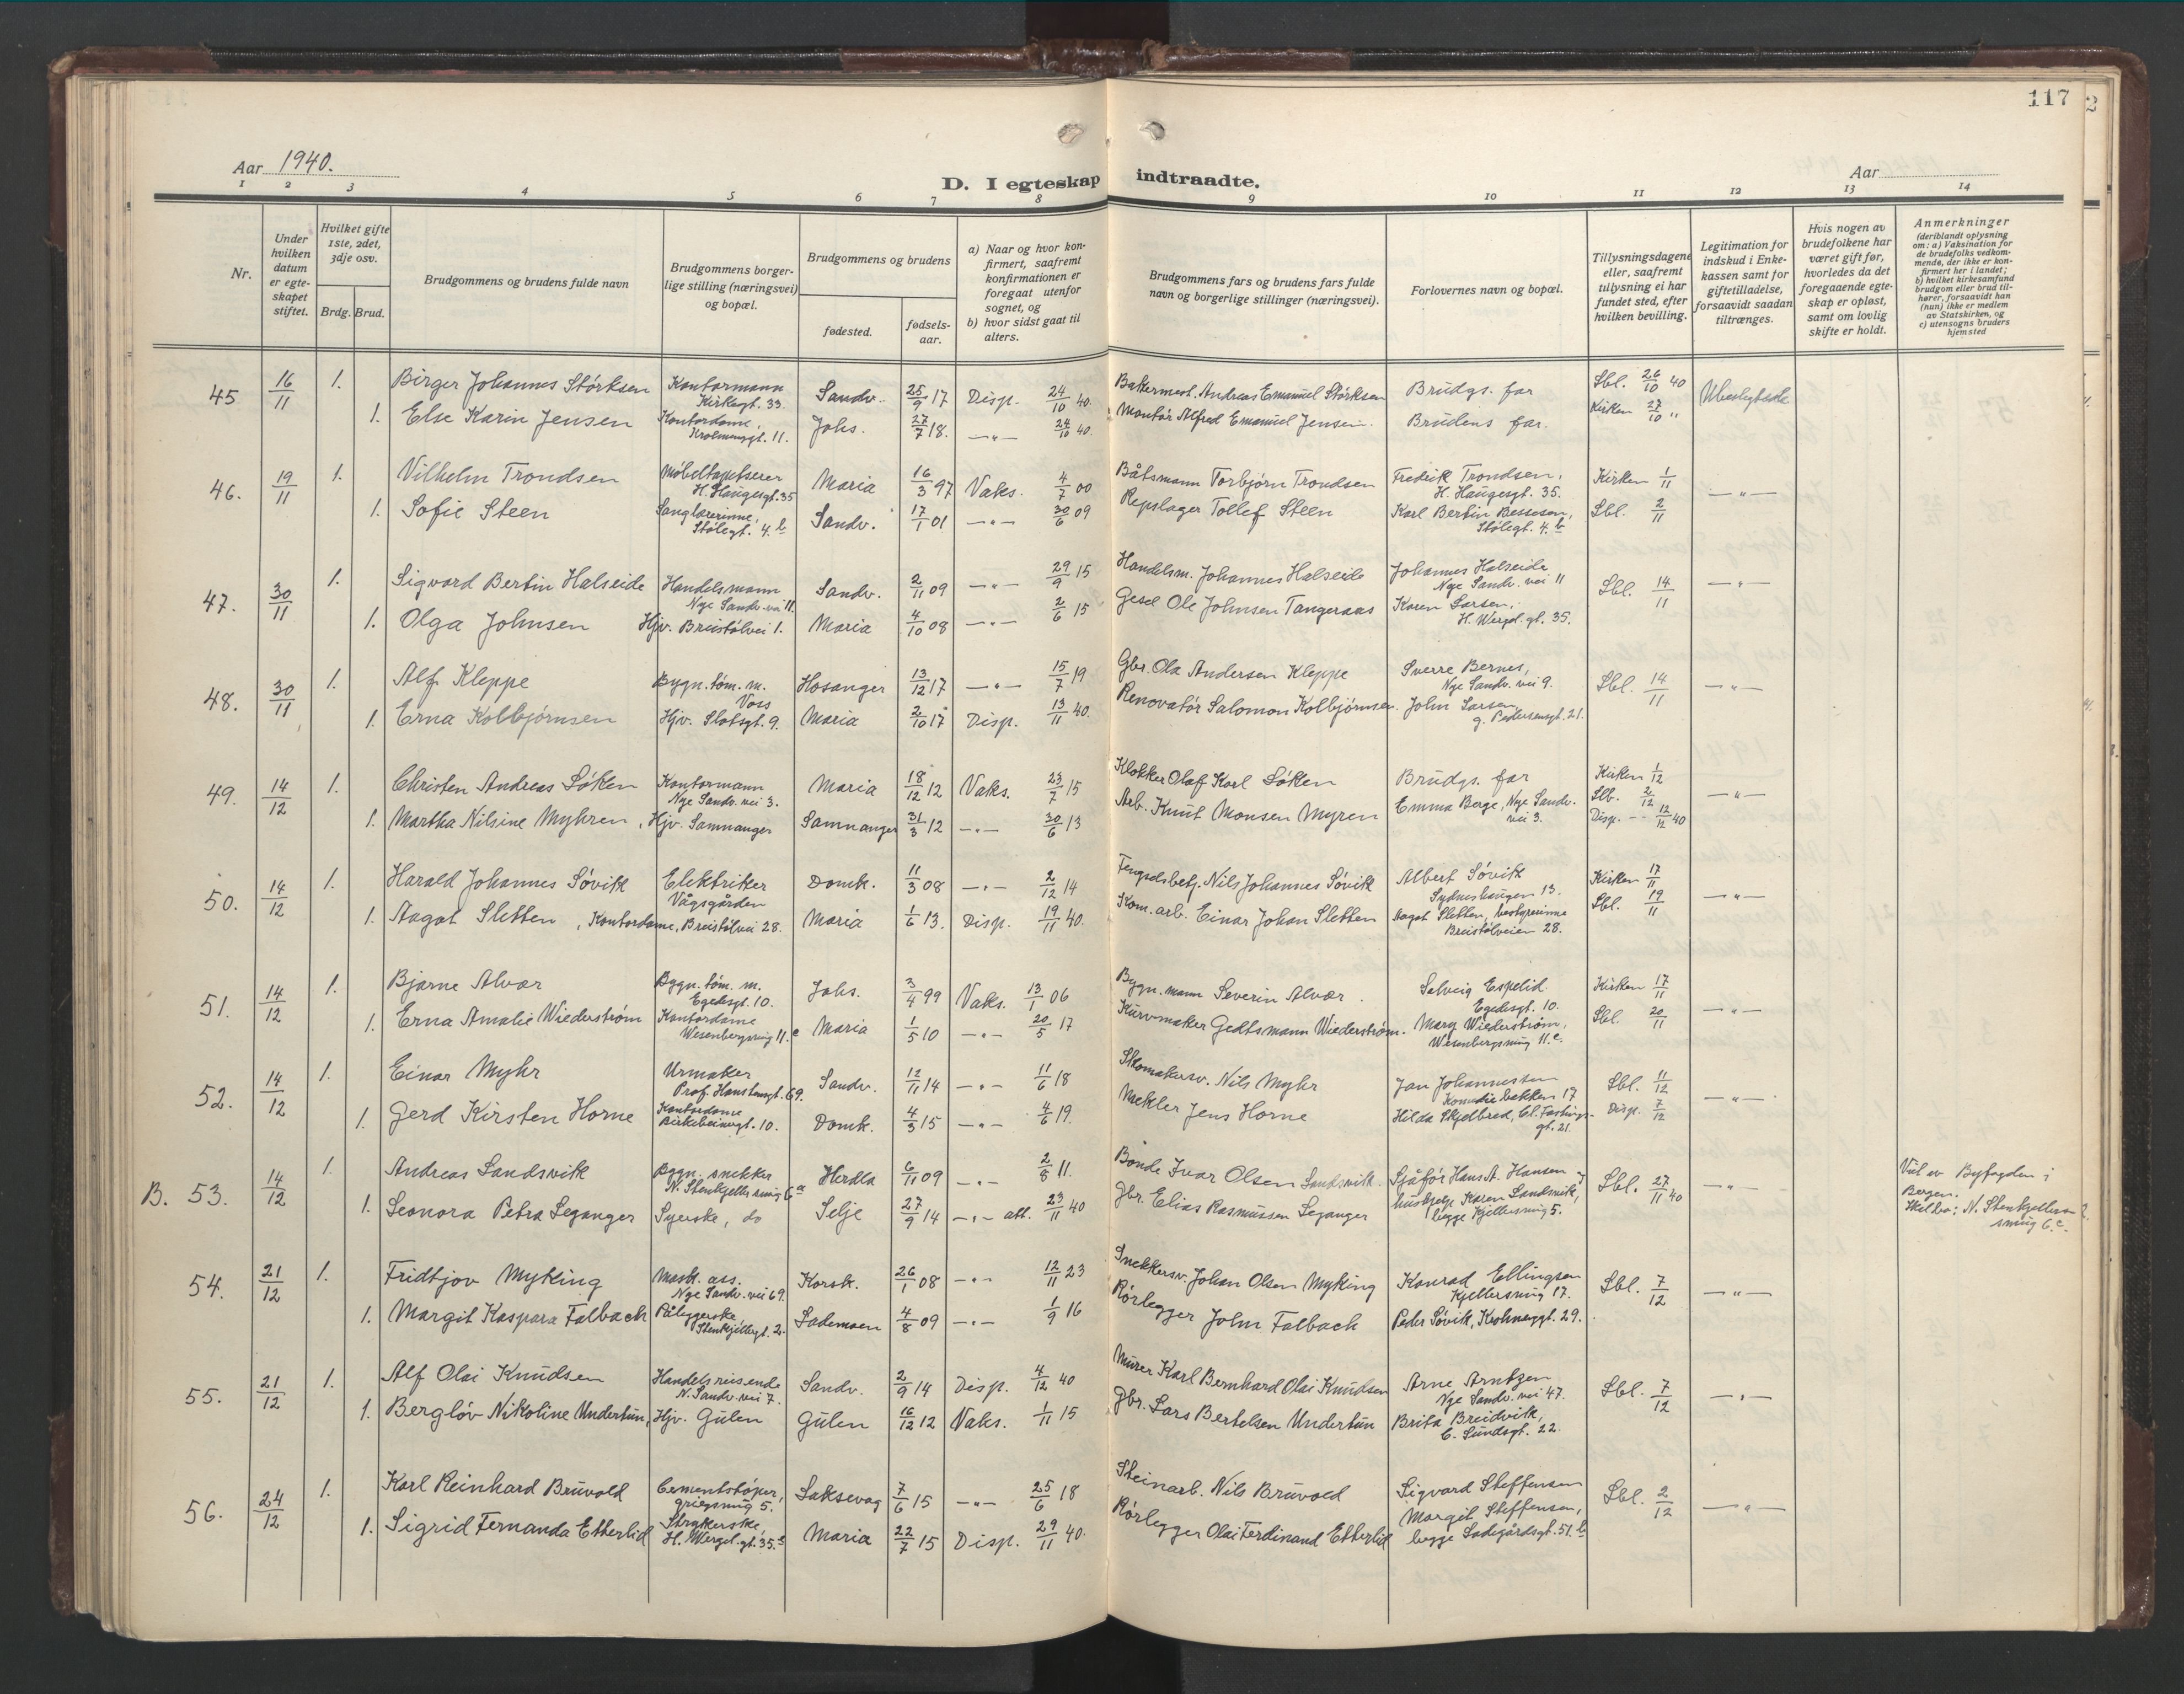 117
2
Aar 1940.
D. I egteskap indtraadte.
Aar
1 2 3 4 5 6 7 8 9 10 11 12 13 14
Nr.
Under hvilken datum er egteskapet stiftet.
Hvilket gifte 1ste, 2det, 3dje osv.
Brdg. Brud.
Brudgommens og brudens fulde navn
Brudgommens borgerlige stilling (næringsvei) og bopæl.
Brudgommens og brudens
fødested.
fødselsaar.
a) Naar og hvor konfirmert, saafremt konfirmationen er foregaat utenfor sognet, og
b) hvor sidst gaat til alters.
Brudgommens fars og brudens fars fulde navn og borgerlige stillinger (næringsvei).
Forlovernes navn og bopæl.
Tillysningsdagene eller, saafremt tillysning ei har fundet sted, efter hvilken bevilling.
Legitimation for indskud i Enkekassen samt for giftetilladelse, forsaavidt saadan tiltrænges.
Hvis nogen av brudefolkene har været gift før, hvorledes da det foregaaende egteskap er opløst, samt om lovlig skifte er holdt.
Anmerkninger
(deriblandt oplysning om: a) Vaksination for de brudefolks vedkommende, der ikke er konfirmert her i landet; b) hvilket kirkesamfund brudgom eller brud tilhører, forsaavidt han (hun) ikke er medlem av Statskirken, og c) utensogns bruders hjemsted
45 16/11 1. Birger Johannes Størksen Kontormann Kirkegt. 33. Sandv. 25/9 17 Disp. 24/10 40. Bakermest. Andreas Emanuel Størksen Brudgs. far Sbl. 26/10 40 Ubeslegtede
1. Else Karin Jensen Kontordame, Krohnengt. 11. Johs. 27/7 18. —"— 24/10 40. Montør Alfred Emanuel Jensen. Brudens far. Kirken 27/10 "
46. 19/11 1. Vilhelm Trondsen Møbeltapetserer H. Haugesgt. 35 Maria 16/3 97 Vaks. 4/7 00 Båtsmann Torbjørn Trondsen Fredrik Trondsen, H. Haugesgt. 35. Kirken 1/11 —"—
1. Sofie Steen Sanglærerinne, Stølegt. 4.b Sandv. 17/1 01 —"— 30/6 09 Repslager Tollef Steen Karl Bertin Bessesen, Stølegt. 4.b Sbl. 2/11
47. 30/11 1. Sigvard Bertin Halseide Handelsmann Nye Sandv. vei 11. Sandv. 2/11 09 —"— 29/9 15 Handelsm. Johannes Halseide Johannes Halseide Nye Sandv. vei 11 Sbl. 14/11 —"—
1. Olga Johnsen Hjv. Breistølvei 1. Maria 4/10 08 —"— 2/6 15 Gesel Ole Johnsen Tangeraas Karen Larsen, H. Wergel. gt. 35.
48. 30/11 1. Alf Kleppe Bygn. tøm. m. Voss Hosanger 13/12 17 —"— 15/7 19 Gbr. Ola Andersen Kleppe Sverre Bernes, Nye Sandv. vei 9. Sbl. 14/11 —"—
1. Erna Kolbjørnsen Hjv. Slotsgt. 9. Maria 2/10 17 Disp. 13/11 40. Renovatør Salomon Kolbjørnsen. John Larsen, G. Pedersensgt. 21.
49. 14/12 1. Christen Andreas Løken Kontormann Nye Sandv. vei 3. Maria 18/12 12 Vaks. 23/7 15 Klokker Olaf Karl Løken Brudgs. far Kirken 1/12 —"—
1. Martha Nilsine Myhren, Hjv. Samnanger Samnanger 31/3 12 —"— 30/6 13 Arb. Knut Monsen Myren Emma Berge, Nye Sandv. vei 3. Slb. 2/12 Disp. 12/12 40
50. 14/12 1. Harald Johannes Søvik Elektriker Vågsgården Domk. 11/3 08 —"— 2/12 14 Fengselsbetj. Nils Johannes Søvik Albert Søvik Sydneshaugen 13. Kirken 17/11 —"—
1. Aagot Sletten, Kontordame, Breistølvei 28. Maria 1/6 13. Disp. 19/11 40. Kom. arb. Einar Johan Sletten Aagot Sletten, bestyrerinne Breistølveien 28. Sbl. 19/11
51. 14/12 1. Bjarne Alvær Bygn. tøm. m. Egedesgt. 10. Johs. 3/4 99 Vaks. 13/1 06 Bygn. mann Severin Alvær. Solveig Espelid Egedesgt. 10. Kirken 17/11 —"—
1. Erna Amalie Wiederstrøm Kontordame Wesenbergsmug 11.c Maria 1/5 10 —"— 20/5 17 Kurvmaker Gedtsmann Wiederstrøm. Mary Wiederstrøm, Wesenbergsmug 11.c. Sbl. 20/11
52. 14/12 1. Einar Myhr Urmaker Prof. Hansteensgt. 69. Sandv. 12/11 14 —"— 11/6 18 Skomakersv. Nils Myhr Jan Johannessen Komediebakken 17 Sbl. 11/12 —"—
1. Gerd Kirsten Horne Kontordame Birkebeinergt. 10. Domk. 4/3 15 —"— 4/6 19. Mekler Jens Horne Hilda Skjelbred, Cl. Fastingsgt. 21. Disp. 7/12
B. 53. 14/12 1. Andreas Landsvik Bygn. snekker N. Stenkjellersmug 6a Herdla 6/11 09 —"— 2/8 11. Bonde Ivar Olsen Landsvik. Sjåfør Hans A. Hansen og hushjelp Karen Landsvik, begge Kjellersmug 5. Sbl. 27/11 40 —"— Viet av Byfogden i Bergen. Skal bo: N. Stenkjellersmug 6c.
1. Leonora Petra Leganger Syerske, do Selje 27/9 14 —"— att. 23/11 40 Gbr. Elias Rasmussen Leganger
54. 21/12 1. Fridtjov Myking Mask. ass. Nye Sandv. vei 69. Korsk. 26/1 08 —"— 12/11 23 Snekkersv. Johan Olsen Myking Konrad Ellingsen Kjellersmug 17. Sbl. 7/12 —"—
1. Margit Kaspara Falbach Påleggerske, Stenkjellergt. 2. Lademoen 4/8 09 —"— 1/9 16 Rørlegger John Falbach Peder Søvik, Krohnenggt. 29.
55. 21/12 1. Alf Olai Knudsen Handelsreisende N. Sandv. vei 7. Sandv. 2/9 14 Disp. 4/12 40 Murer Karl Bernhard Olai Knudsen Arne Arntzen Nye Sandv. vei 47. Sbl. 7/12 —"—
1. Bergløv Nikoline Undertun, Hjv. Gulen Gulen 16/12 12 Vaks. 1/11 15 Gbr. Lars Bertelsen Undertun Brita Breidvik, C. Sundsgt. 22.
56. 24/12 1. Karl Reinhard Bruvold Cementstøper, Griegsmug 5. Laksevag 7/6 15 —"— 25/6 18 Steinarb. Nils Bruvold Sigvard Steffensen Sbl. 2/12 —"—
1. Sigrid Fernanda Etterlid Strykerske, H. Wergel. gt. 35. Maria 22/7 15 Disp. 29/11 40. Rørlegger Olai Ferdinand Etterlid Margit Steffensen, begge Ladegårdsgt. 51.b